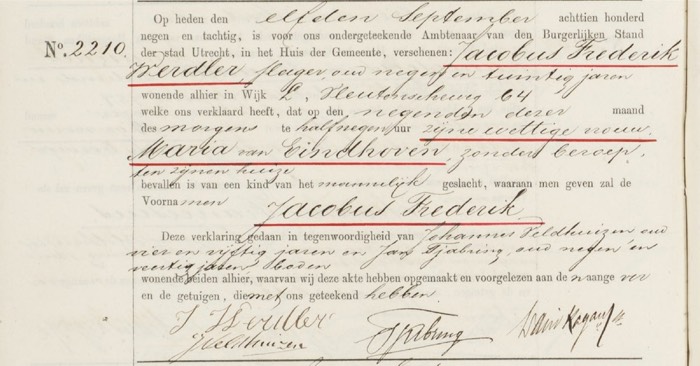 Op heden den elfden September achttien honderd
negen en tachtig, is voor ons ondergeteekende Ambtenaar van den Burgerlijken Stand
No. 2210. der stad Utrecht, in het Huis der Gemeente, verschenen: Jacobus Frederik
Werdler, slager, oud negen en twintig jaren
wonende alhier in Wijk L, 64
welke ons verklaard heeft, dat op den negenden dezer maand
des morgens te halfnegen uur zijne wettige vrouw
Maria van Eindhoven, zonder beroep,
ten zijnen huize
bevallen is van een kind van het mannelijk geslacht, waaraan men geven zal de
Voornamen Jacobus Frederik
Deze verklaring gedaan in tegenwoordigheid van Johannes Veldhuizen oud
vier en vijftig jaren en Jan Tjabring, oud negen en
veertig jaren, boden
wonende beiden alhier, waarvan wij deze akte hebben opgemaakt en voorgelezen aan de
en de getuigen, die met ons geteekend hebben.
J Werdler
JVeldhuizen Tjabring